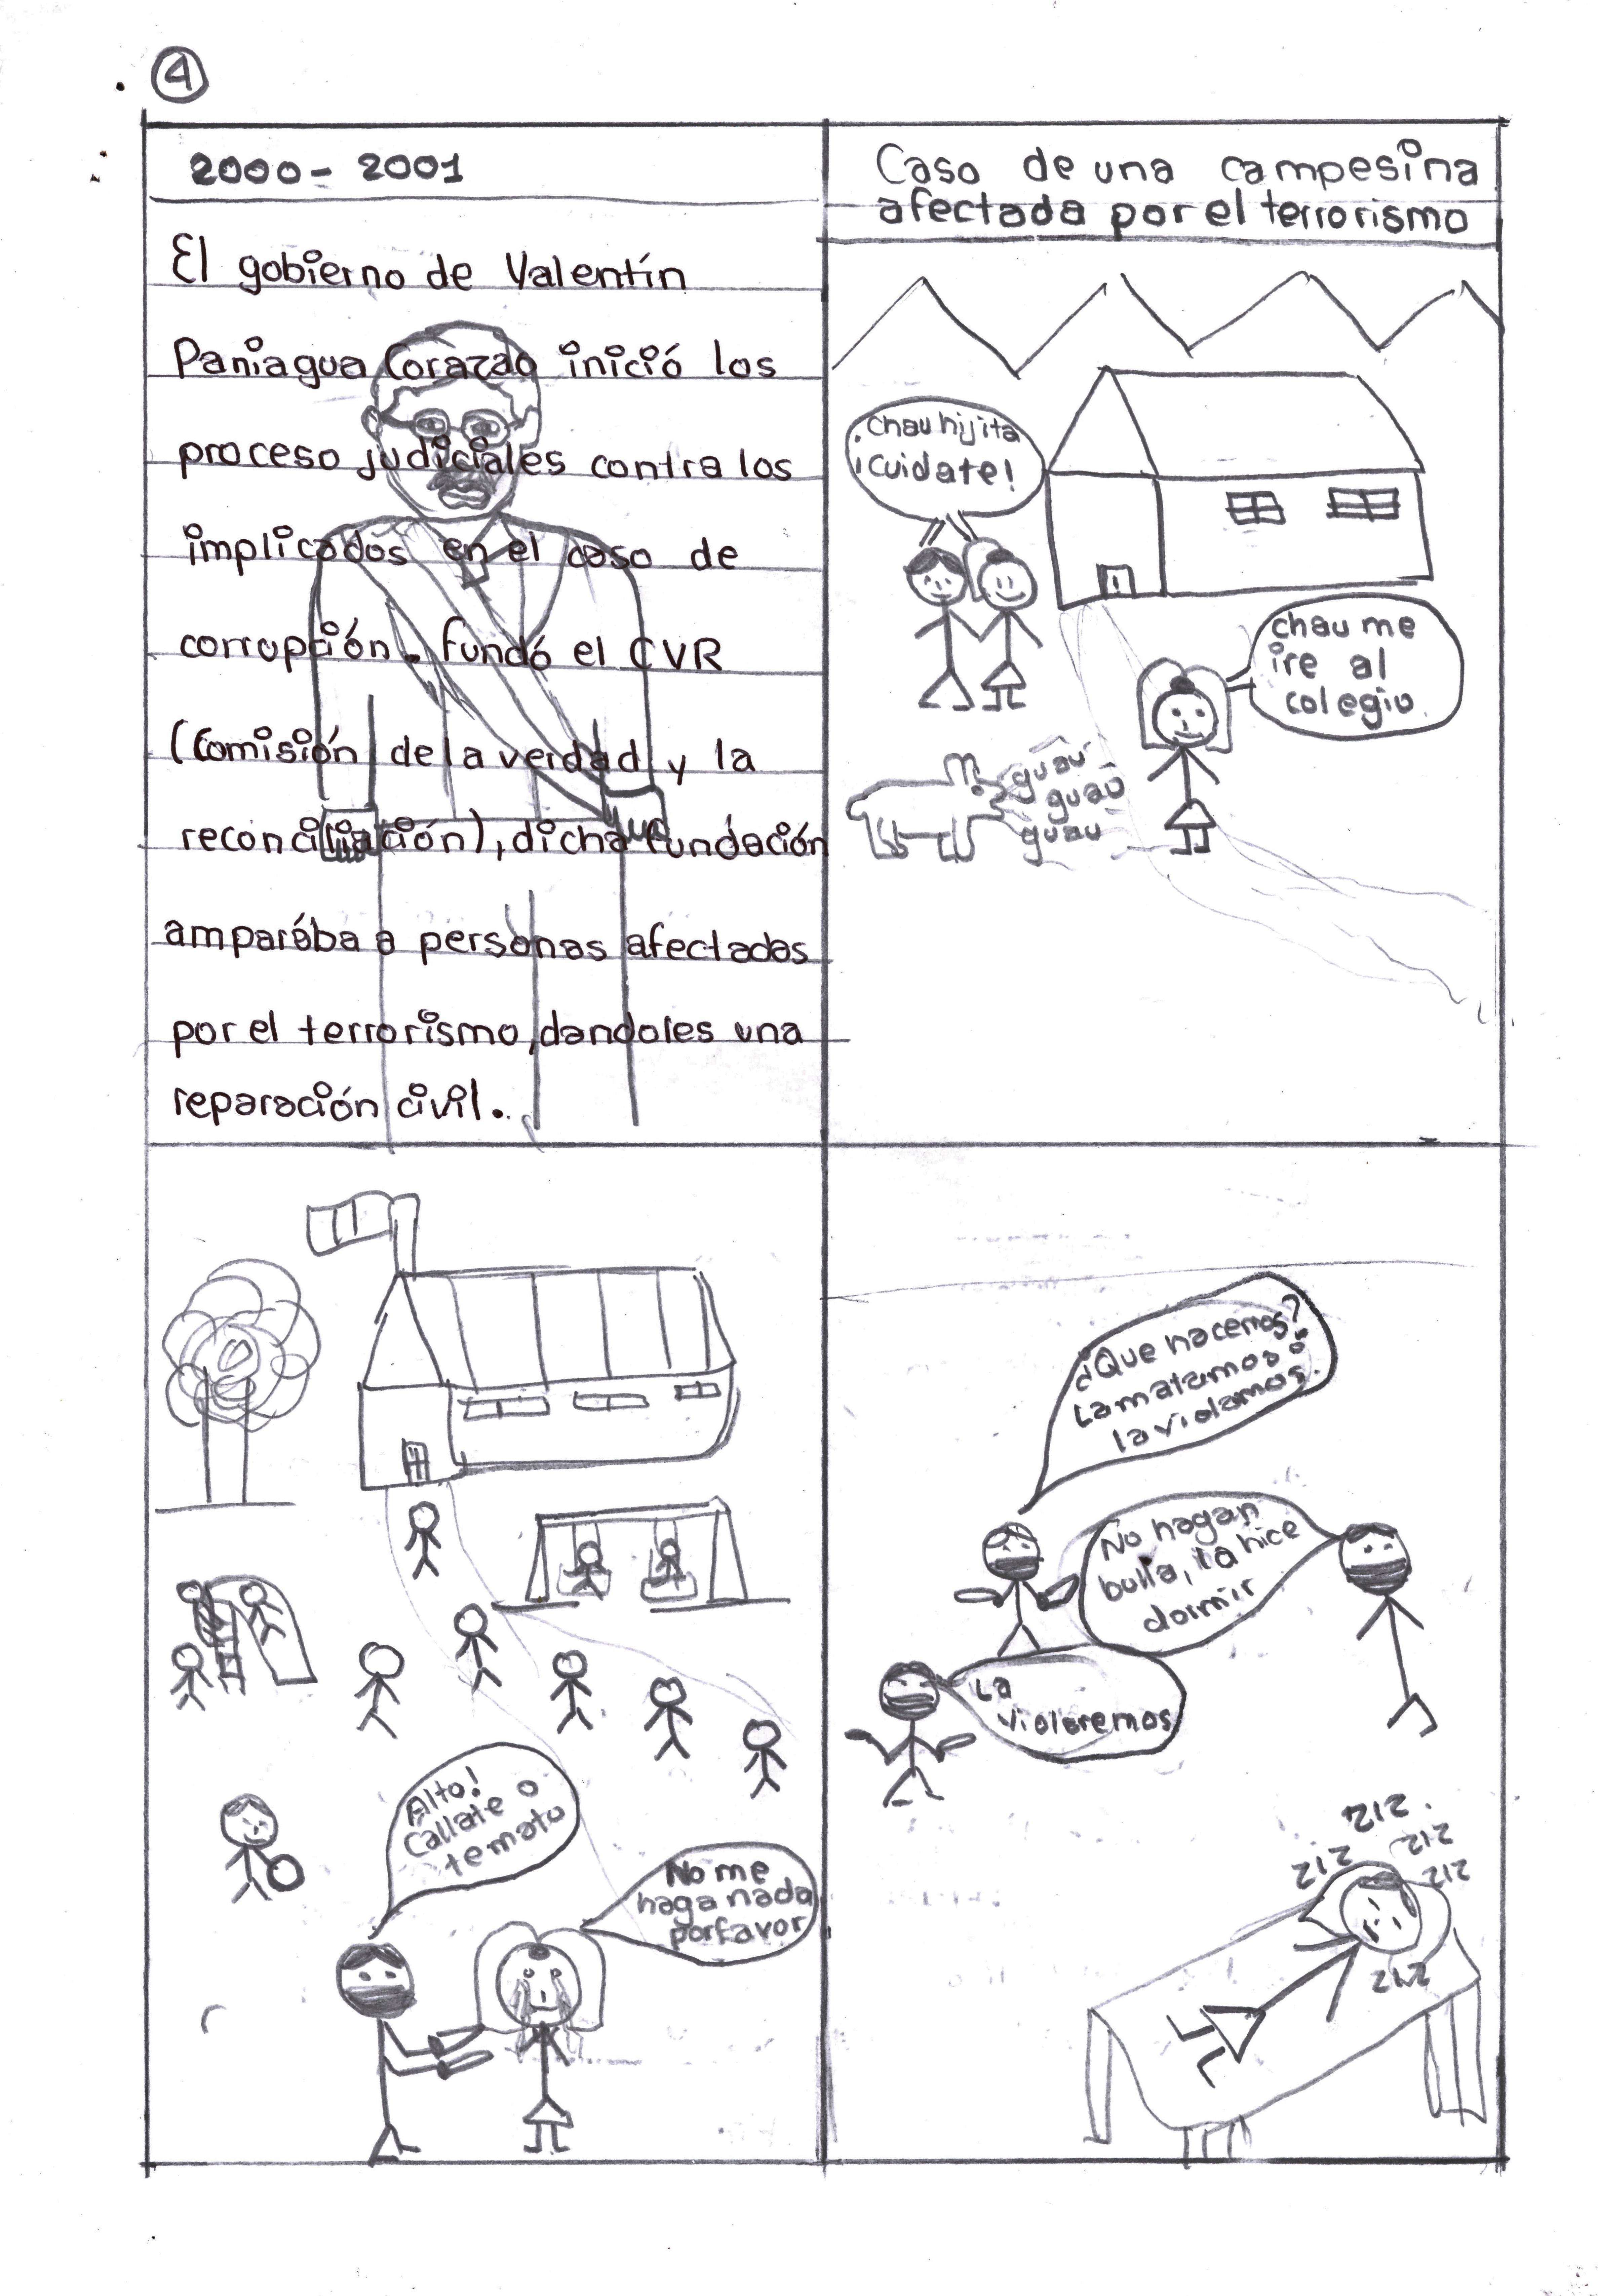 4
2000- 2001
El gobierno de Valentín
Paniagua Corazao inició los
proceso judiciales contra los
implicados en el caso de
corrupción. fundó el CVR
(Comisión de la verdad y la
reconciliación), dicha fundación
amparába a personas afectadas
por el terrorismo, dandoles una
reparación civil.
Caso de una campesina
afectada por el terrorismo
chau hijita
¡cuidate!
chau me
ire al
colegio.
guau
guau
guau
Alto!
Callate o
te mato
No me
haga nada
porfavor
¿Que hacemos?
La matamos o
la violamos.
No hagan
bulla, la hice
dormir
La
violaremos
ZIZ
ZIZ
ZIZ
ZIZ
ZIZ